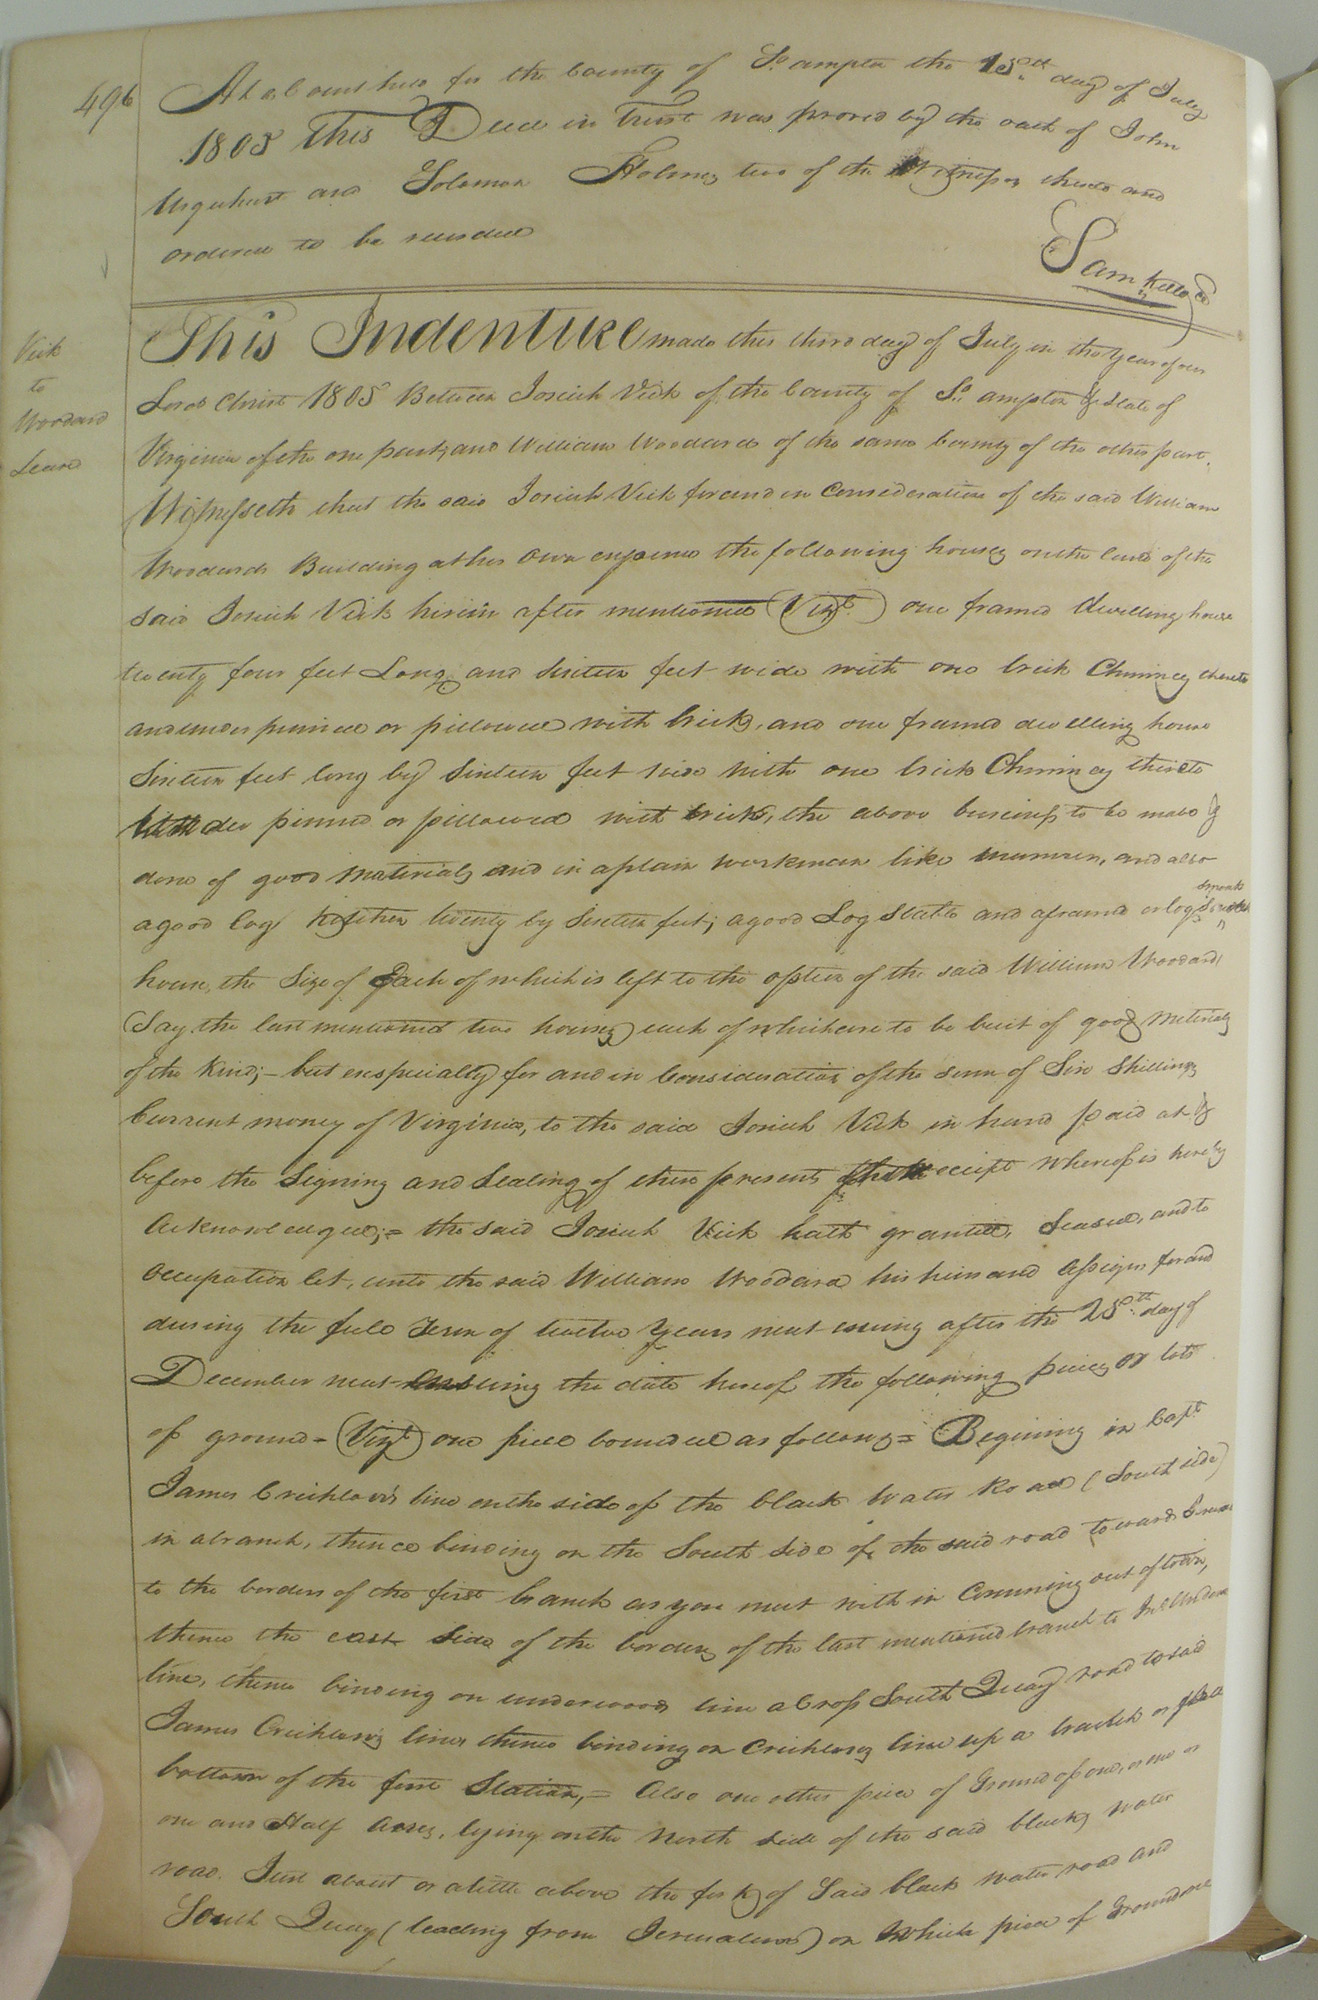 496
At a Court held for the County of So. ampton the 15th day of July
1805 This Deed in trust was proved by the oath of John
Urquhart and Solomon Holmes two of the Witnesses thereto and
ordered to be recorded
Sam Kello Cl
Vick
to
Woodard
Lease
This Indenture made this third day of July in the Year of our
Lord Christ 1805 Between Josiah Vick of the County of So. ampton & State of
Virginia of the one part, and William Woodard of the same County of the other part.
Witnesseth that the said Josiah Vick for and in Consideration of the said William
Woodards Building at his own expence the following houses on the land of the
said Josiah Vick herein after mentioned (Vizt.) one framed dwelling house
twenty four feet Long and Sixteen feet wide with one brick Chimney thereto
and under pinned or pillowed with brick, and one framed dwelling house
Sixteen feet long by Sixteen feet wide with one brick Chimney thereto
under pinned or pillowed with brick, the above business to be made &
done of good materials and in a plain workman like manner, and also
a good log Kitchen twenty by Sixteen feet; a good Log Stable and a framed or log smoak
house, the Size of Each of which is left to the option of the said William Woodard,
(Say the last mentioned two houses) each of which are to be built of good Meterials
of the Kind; - but enspecially for and in Consideration of the sum of Six Shillings
Current money of Virginia, to the said Josiah Vick in hand paid at &
before the Signing and Sealing of these presents the receipt whereof is hereby
Acknowledged; = the said Josiah Vick hath granted, Leased, and to
occupation let, unto the said William Woodard his heirs and Assigns for and
during the full Term of twelve Years next ensuing after the 25th day of
December next ensuing the date hereof the following pieces or lots
of ground = (Vizt) one piece bounded as follows = Begining in Capt
James Crichlow's line on the side of the black Water Road (South side)
in a branch, thence binding on the South Side of the said road towards
to the borders of the first branch as you meet with in Comming out of town,
thence the east Side of the borders of the last mentioned branch to
line, thence binding on underwoods line a Cross South Quay road to said
James Crichlow's line thence binding on Crichlows line up a branch or
bottom of the first Station, = Also one other piece of Ground of one, or
one and Half Acres, lying on the North side of the said black Water
road. Just about or a little above the fork of Said black Water road and
South Quay (leading from Jerusalem) on Which piece of Ground one